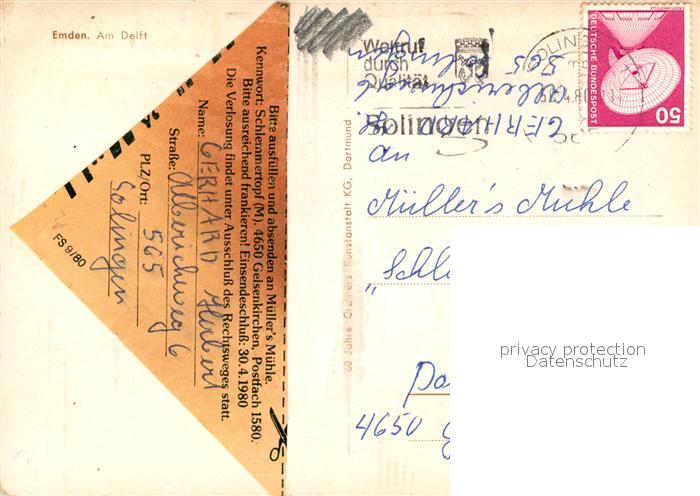 Emden. Am Delft
Bitte ausfüllen und absenden an Müller's Mühle.
Kennwort: Schlemmertopf (M), 4650 Gelsenkirchen, Postfach 1580.
Bitte ausreichend frankieren! Einsendeschluß: 30.4.1980
Die Verlosung findet unter Ausschluß des Rechtsweges statt.
Name: GERHARD Herbert
Straße: Alberichweg 6
PLZ/Ort: 565
Solingen
FS 9/80
Weltruf
durch
Qualität
Solingen
GERHARD
Alberichweg 6
565
DEUTSCHE BUNDESPOST
50
an
Müller's Mühle
"Schle
Po
4650 G
60 Jahre Cramers Kunstanstalt KG, Dortmund
privacy protection
Datenschutz